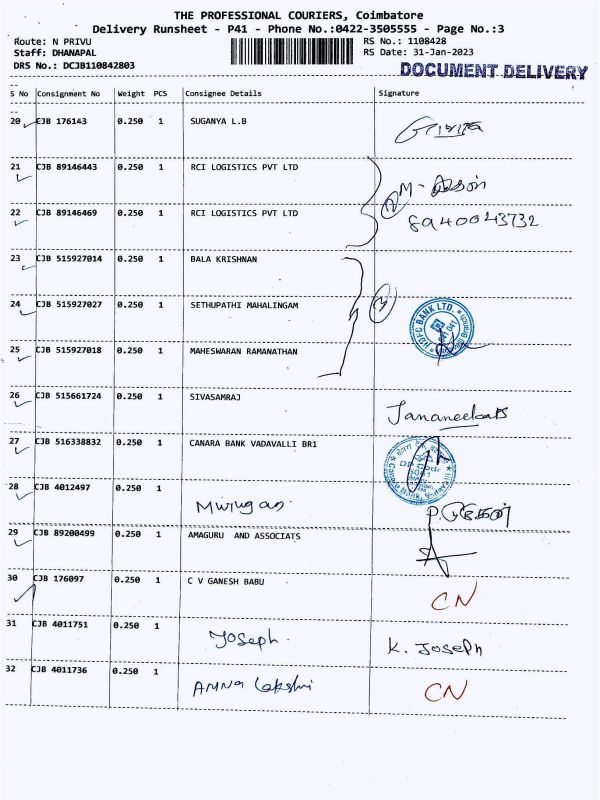 THE PROFESSIONAL COURIERS, Coimbatore
Delivery Runsheet - P41 - Phone No.:0422-3505555 - Page No.:3
Route: N PRIVU RS No.: 1108428
Staff: DHANAPAL RS Date: 31-Jan-2023
DRS No.: DCJB110842803
DOCUMENT DELIVERY
S No Consignment No Weight PCS Consignee Details Signature
20 CJB 176143 0.250 1 SUGANYA L.B
21 CJB 89146443 0.250 1 RCI LOGISTICS PVT LTD M-
22 CJB 89146469 0.250 1 RCI LOGISTICS PVT LTD 8940043732
23 CJB 515927014 0.250 1 BALA KRISHNAN
24 CJB 515927027 0.250 1 SETHUPATHI MAHALINGAM
HDFC BANK LTD.
25 CJB 515927018 0.250 1 MAHESWARAN RAMANATHAN
26 CJB 515661724 0.250 1 SIVASAMRAJ
27 CJB 516338832 0.250 1 CANARA BANK VADAVALLI BR1
28 CJB 4012497 0.250 1 Murugan
29 CJB 89200499 0.250 1 AMAGURU AND ASSOCIATS
30 CJB 176097 0.250 1 C V GANESH BABU CN
31 CJB 4011751 0.250 1 Joseph. K. Joseph
32 CJB 4011736 0.250 1 CN